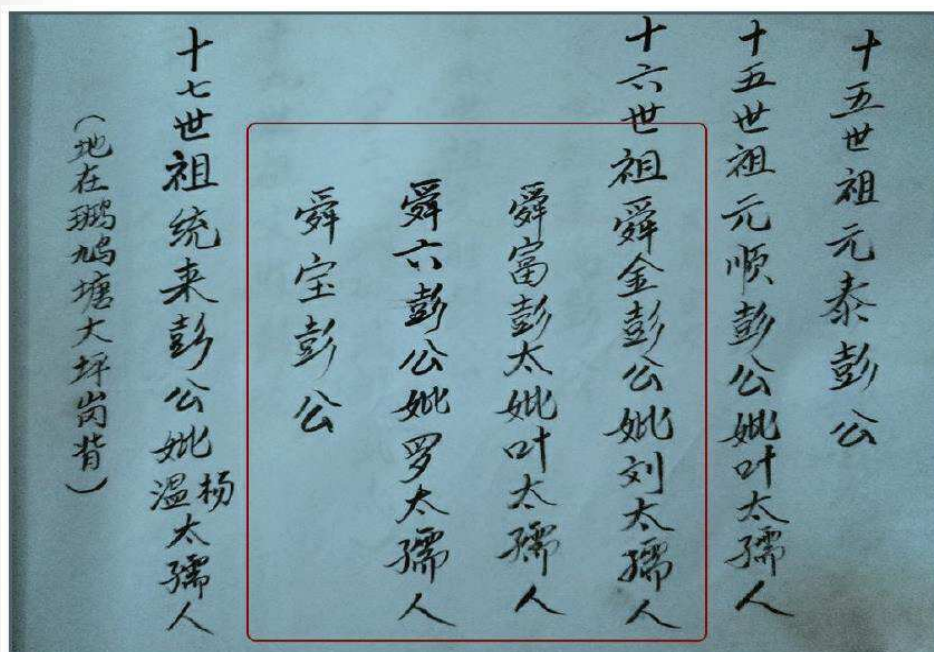 十五世祖元泰彭公
十五世祖元顺彭公妣叶太孺人
十六世祖舜金彭公妣刘太孺人
舜富彭太妣叶太孺人
舜六彭公妣罗太孺人
舜宝彭公
十七世祖统来彭公妣温杨太孺人
（地在鹏鸠塘大坪岗背）